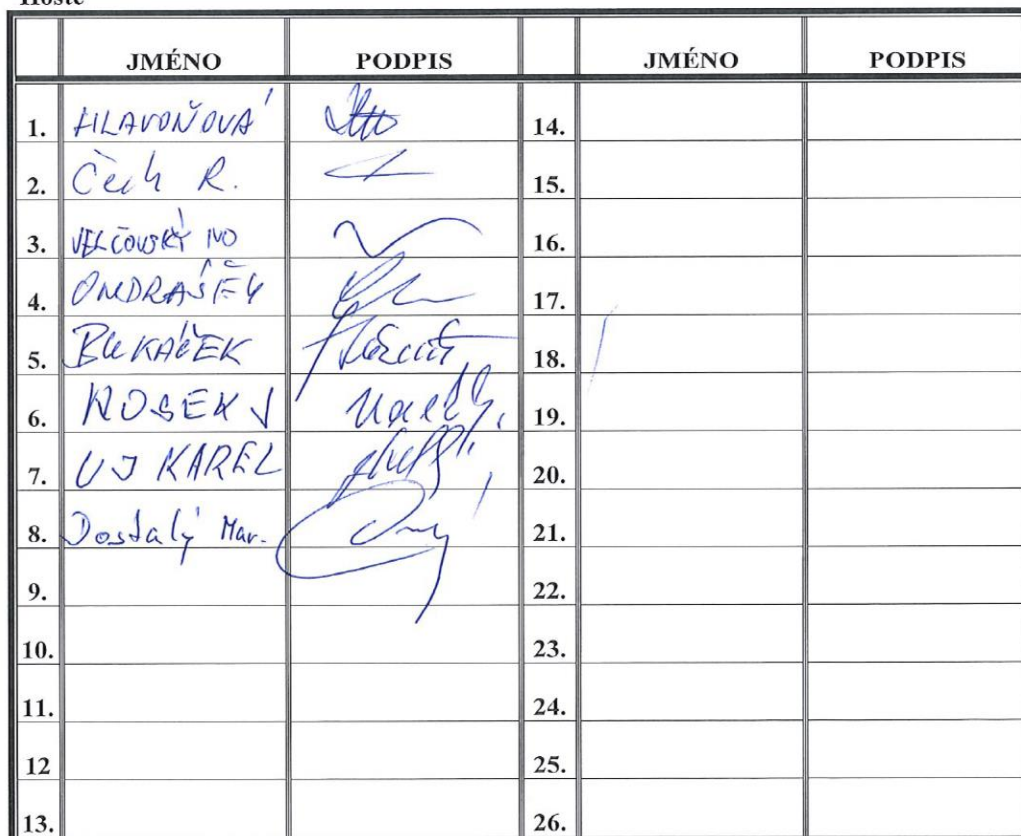 Hosté
JMÉNO PODPIS JMÉNO PODPIS
1. HLAVOŇOVÁ 14.
2. Čech R. 15.
3. VELČOVSKÝ IVO 16.
4. ONDRAŠÍK 17.
5. BUKÁČEK 18.
6. NOSEK J 19.
7. UJ KAREL 20.
8. Dostalý Mar. 21.
9. 22.
10. 23.
11. 24.
12 25.
13. 26.